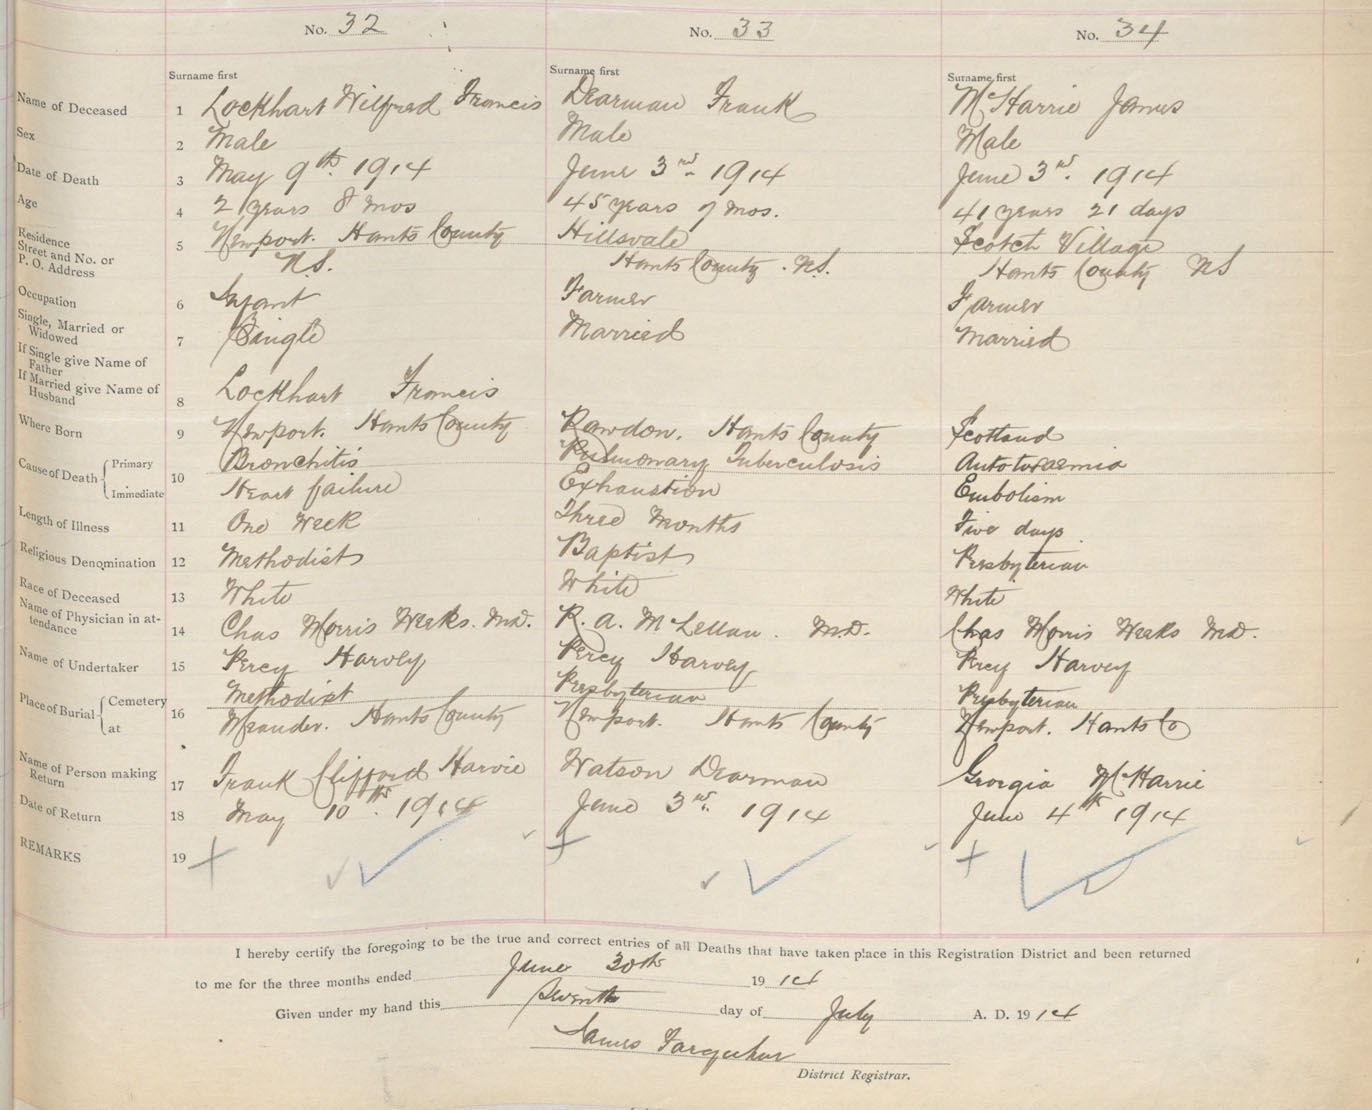 No. 32 No. 33 No. 34
Surname first Surname first Surname first
Name of Deceased 1 Lockhart Wilfred Francis Dearman Frank McHarrie James
Sex 2 Male Male Male
Date of Death 3 May 9th 1914 June 3rd 1914 June 3rd. 1914
Age 4 2 years 8 mos 45 years 7 mos. 41 years 21 days
Residence 5 Newport. Hants County Hillsvale Scotch Village
Street and No. or
P. O. Address N.S. Hants County. N.S. Hants County NS
Occupation 6 Infant Farmer Farmer
Single, Married or
Widowed 7 Single Married Married
If Single give Name of
Father
If Married give Name of
Husband 8 Lockhart Francis
Where Born 9 Newport. Hants County Rawdon. Hants County Scotland
Cause of Death Primary Bronchitis Pulmonary Tuberculosis Autotoxaemia
Immediate 10 Heart failure Exhaustion Embolism
Length of Illness 11 One Week Three Months Five days
Religious Denomination 12 Methodist Baptist Presbyterian
Race of Deceased 13 White White White
Name of Physician in at-
tendance 14 Chas Morris Weeks. M.D. R. A. McLellan. M.D. Chas Morris Weeks M.D.
Name of Undertaker 15 Percy Harvey Percy Harvey Percy Harvey
Place of Burial Cemetery Methodist Presbyterian Presbyterian
at 16 Meander. Hants County Newport. Hants County Newport. Hants Co
Name of Person making
Return 17 Frank Clifford Harvie Watson Dearman Georgia McHarrie
Date of Return 18 May 10th. 1914 June 3rd. 1914 June 4th 1914
REMARKS 19
I hereby certify the foregoing to be the true and correct entries of all Deaths that have taken place in this Registration District and been returned
to me for the three months ended June 30th 19 14
Given under my hand this seventh day of July A. D. 19 14
James Farquhar
District Registrar.